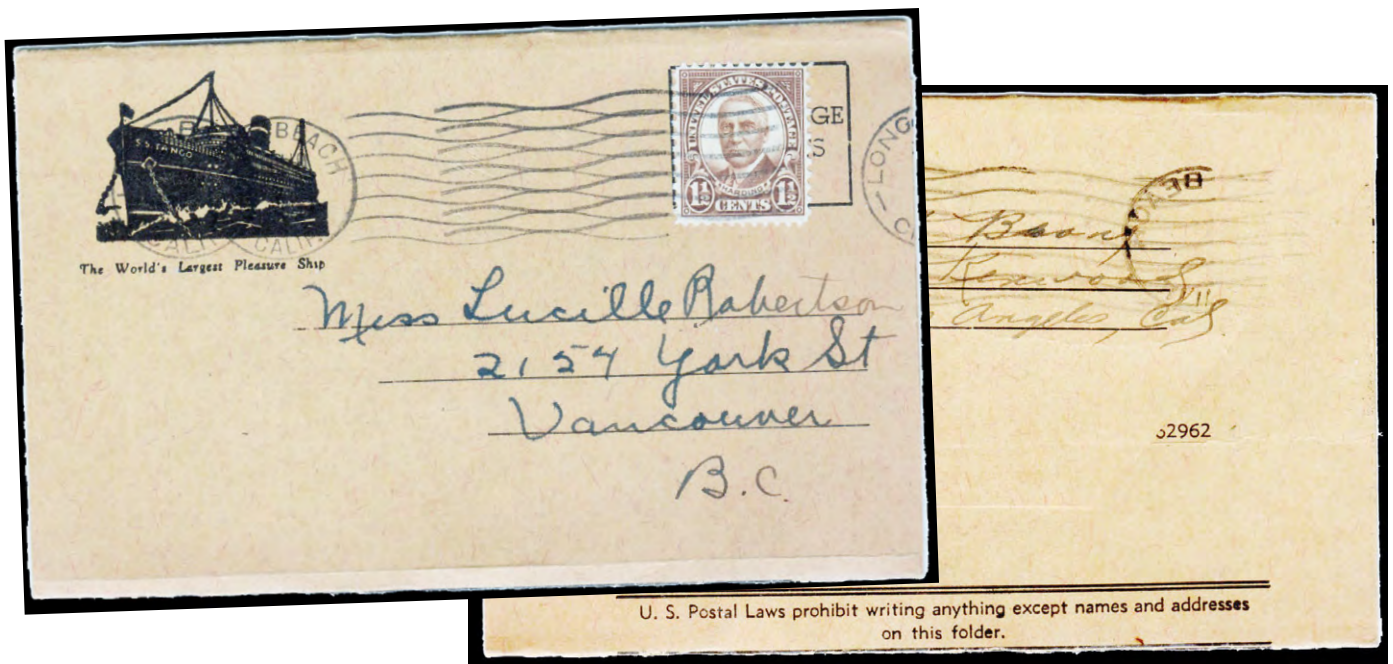 BEACH
S.S. TANGO
CALIF.
CALIF.
The World's Largest Pleasure Ship
UNITED STATES POSTAGE
HARDING
1½ CENTS 1½
GE
S
LONG
C
Miss Lucille Robertson
2154 York St
Vancouver
B.C.
Boon
Kenwood
Angeles, Cal
62962
U. S. Postal Laws prohibit writing anything except names and addresses
on this folder.